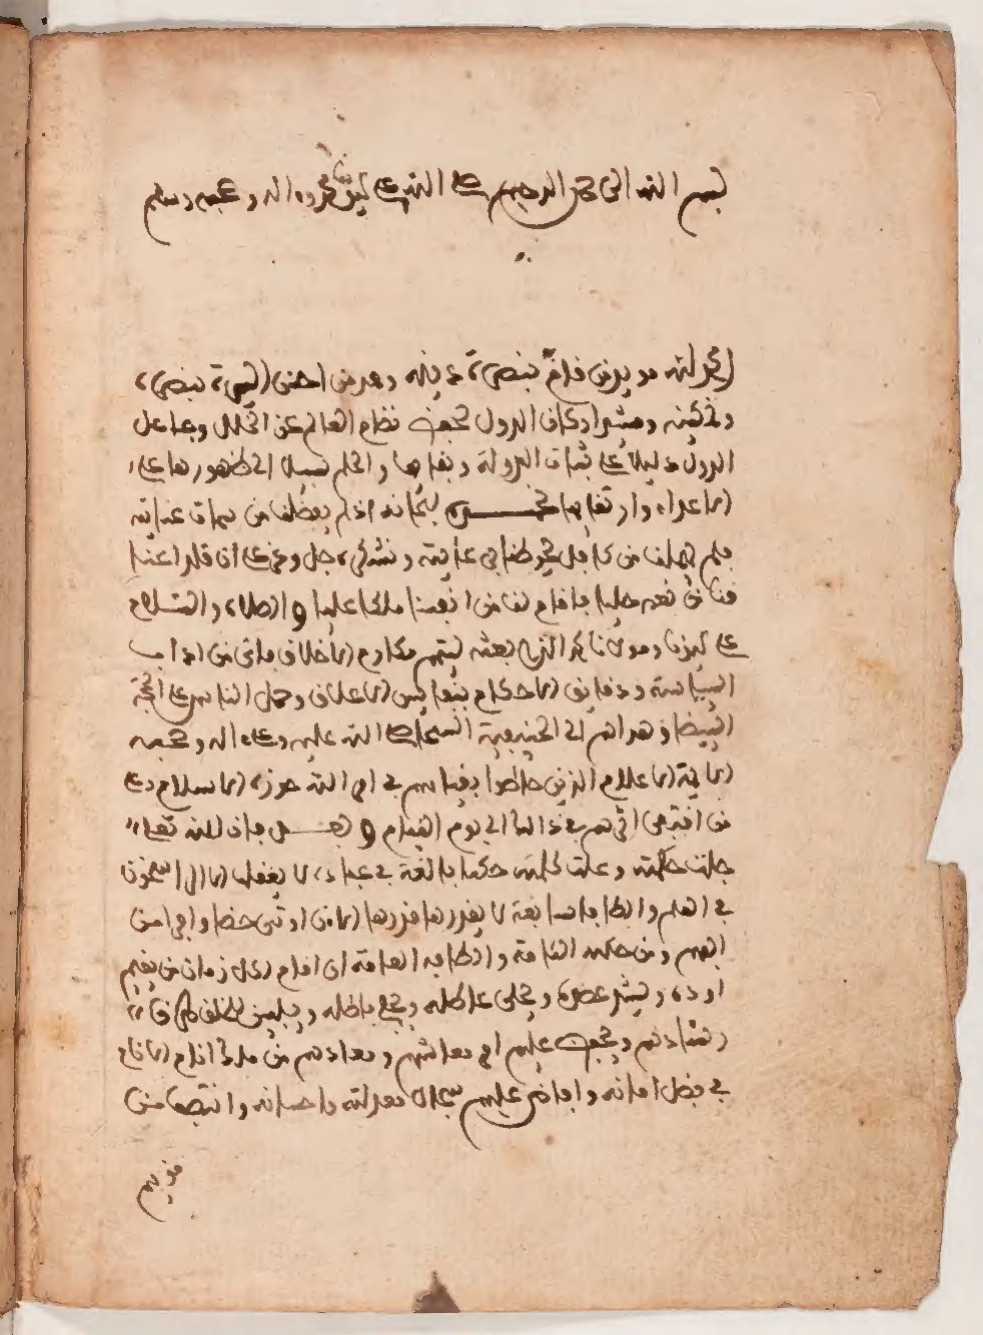 بسم الله الرحمن الرحيم صلى الله على سيدنا محمد وآله وصحبه وسلم
الحمد لله مويد من قام بنصرة دينه ومعز من احسن
وتمكينه ومشيد اركان الدول لحفظ نظام العالم عن الخلل وجاعل
العدول دليلا على ثبات الدولة وبقايها والحلم سبيلا الى ظهورها على
الاعداء وارتقايها نحمده سبحانه اذ لم يعطلنا من سمات عنايته
فلم يهملنا من كافل يحوطنا في رعايته ونشكره جل وعز على ان قلد اعنا
قنا من نعم جليلة باقام لنا من انفسنا ملكا علينا و الصلاة والسلام
على سيدنا ومولانا محمد الذي بعثه ليتمم مكارم الاخلاق فاتى من اداب
السياسة ودقايق الاحكام بنفايس الاعلاق وحمل الناس على المحجة
البيضا وهداهم الى الحنيفية السمحا صلى الله عليه وعلى اله وصحبه
الاية الاعلام الذين حاطوا بقيامهم في امر الله حوزة الاسلام وعلى
من اقتفى اثرهم في ذلك الى يوم القيام و بعد فان لله تعلى
جلت حكمته وعلت كلمته حكما بالغة في عباده لا يعقلها الا الراسخون
في العلم والطافا سابغة لا يقدرها قدرها الا من اوتى حظا وافرا من
الفهم ومن حكمه التامة والطافه العامة ان اقام لكل زمان من يقيم
اوده ويشد عضده ويحلي عاطله ويمحي باطله ويبلغ الخلق طرفا
رشادهم ويحفظ عليهم امر معاشهم ومعادهم من ملك انام الانام
في ظل امانه وافاض عليهم سجال معدلته واحسانه وانتصافا من